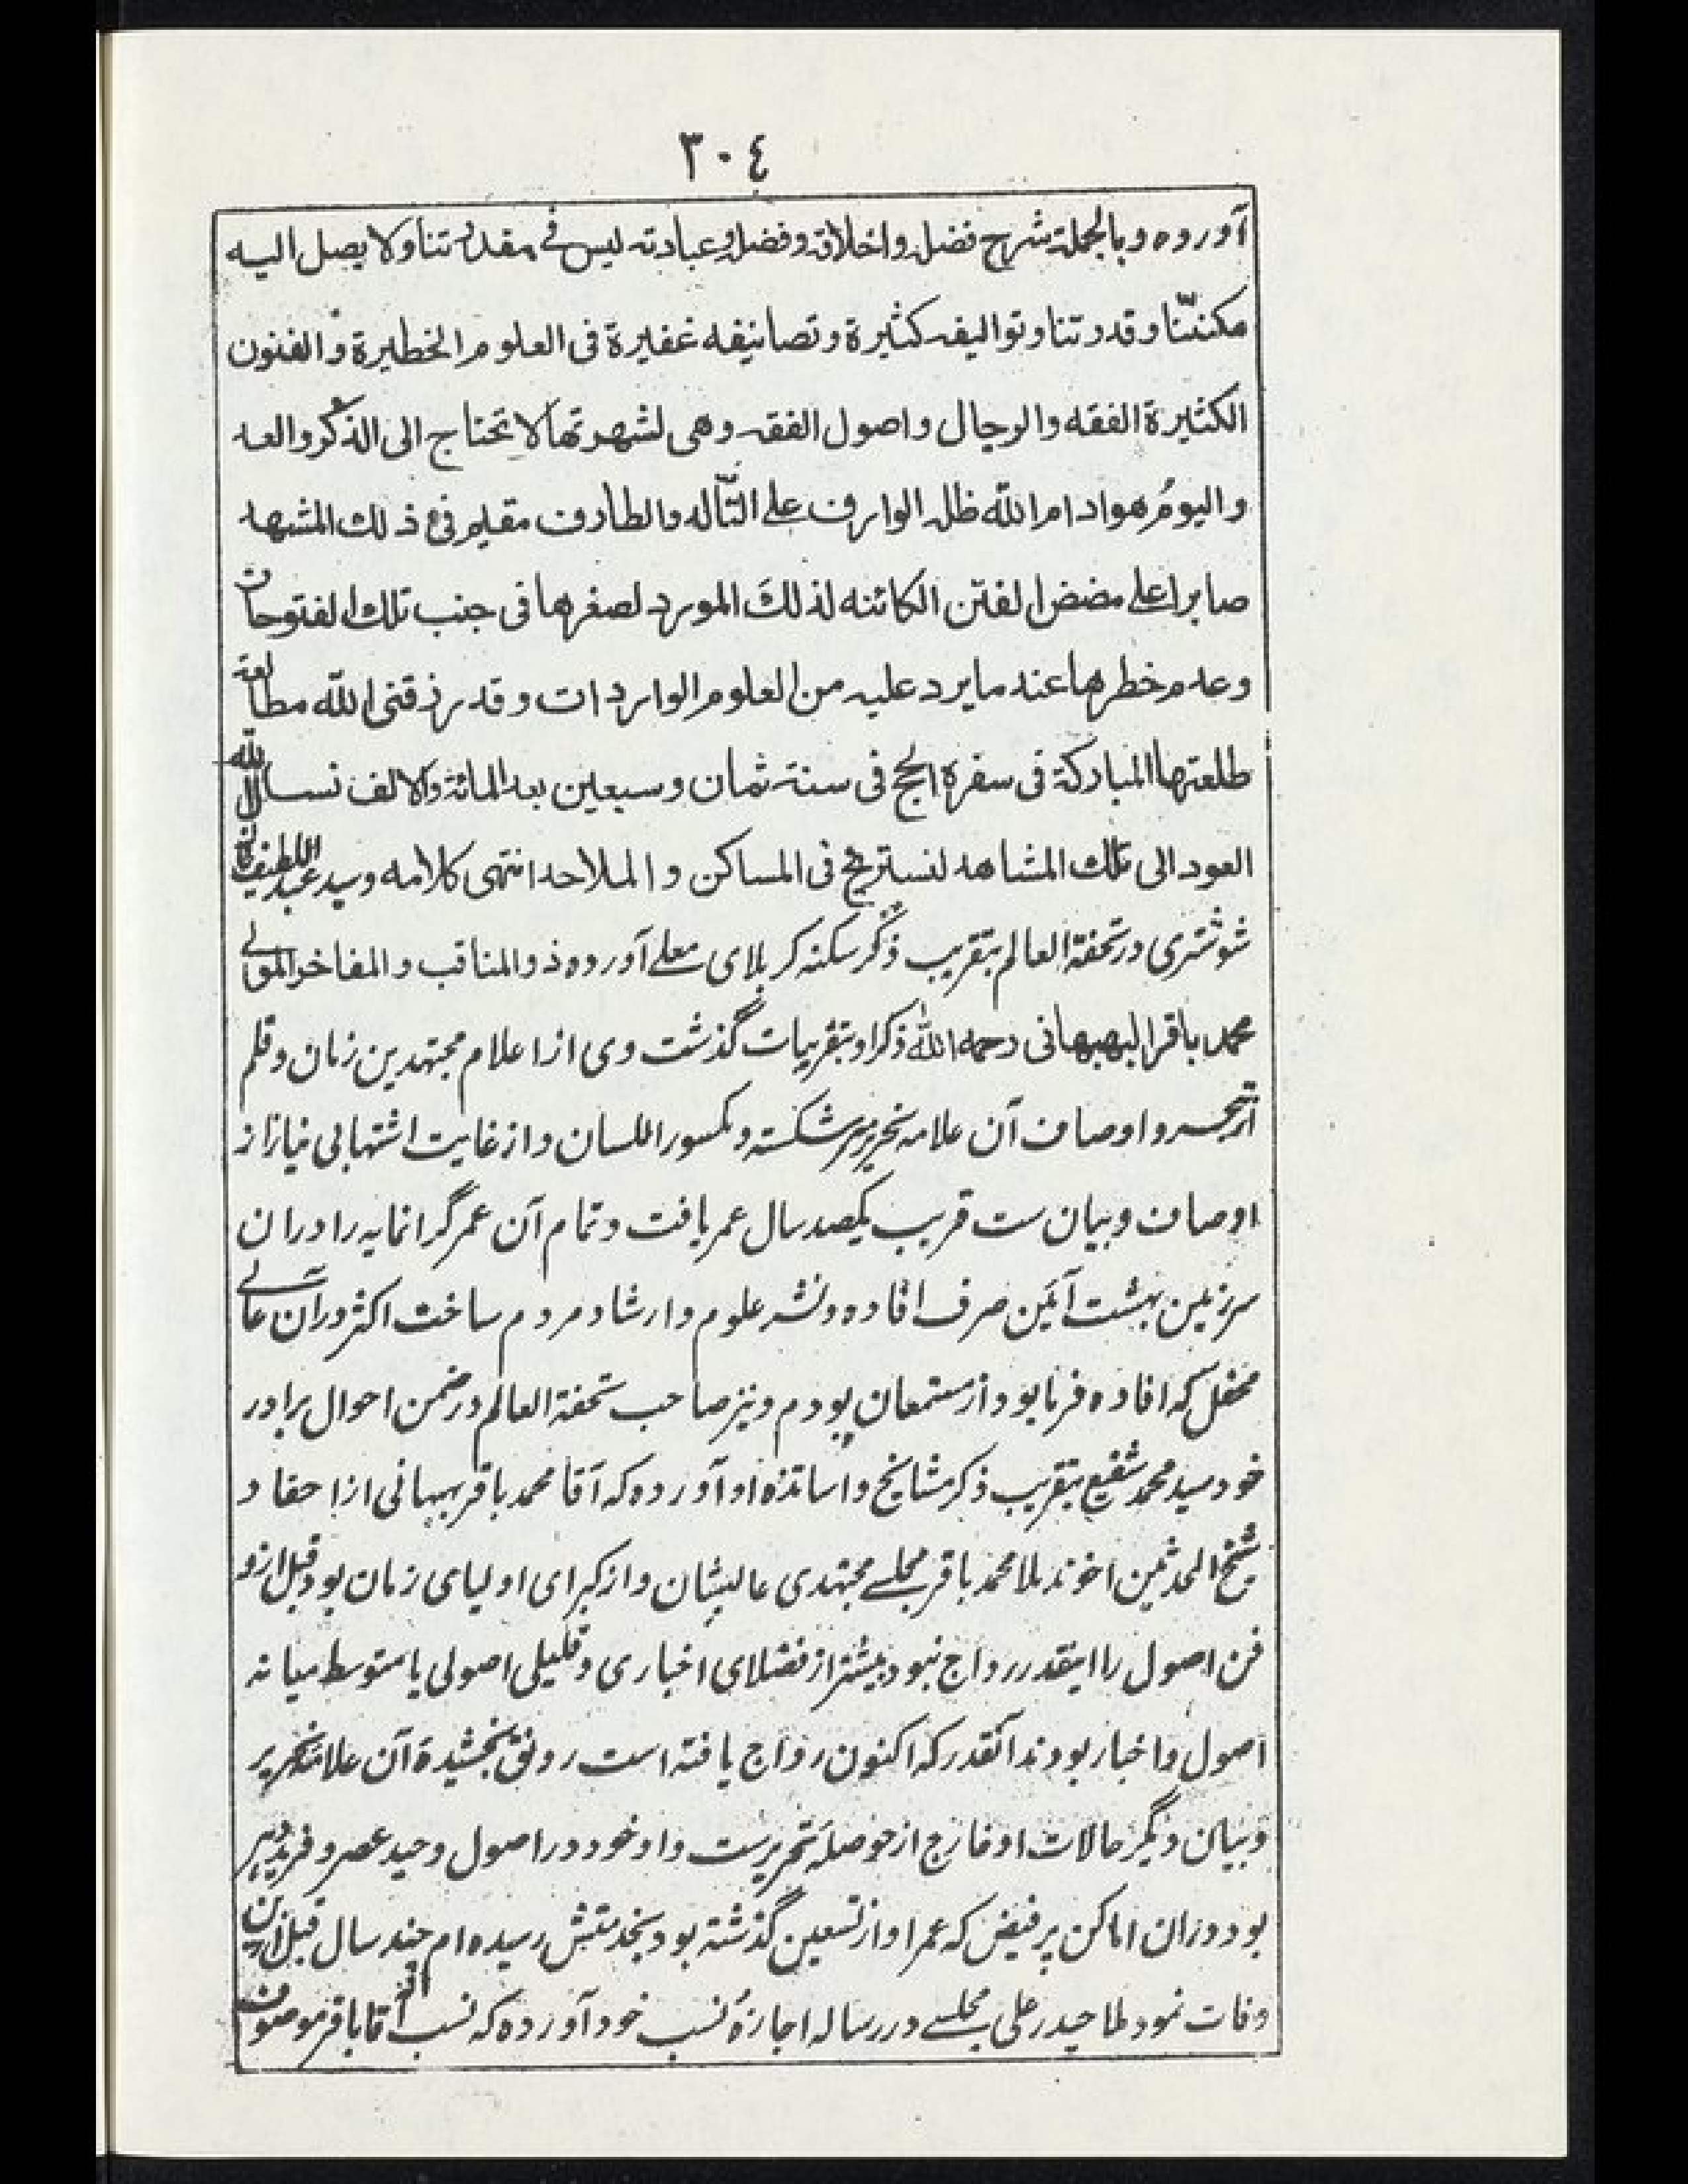 ٣٠٤
آورده و بالجملة شرح فضله و اخلاقه و فضله و عبادته ليس فى مقدرتنا و لا يصل اليه
مكنتنا و قدرتنا و تواليفه كثيرة و تصانيفه غفيرة فى العلوم الخطيرة و الفنون
الكثيرة الفقه و الرجال و اصول الفقه و هى لشهرتها لا تحتاج الى الذكر و العد
و اليوم هو ادام الله ظله الوارف على التالد و الطارف مقيم فى ذلك المشهد
صابرا على مضض الفتن الكائنه لذلك المورد لصغرها فى جنب تلك الفتوحات
و عدم خطرها عند ما يرد عليه من العلوم الواردات و قد رزقنى الله مطالعة
طلعتها المباركة فى سفرة الحج فى سنة ثمان و سبعين بعد المائة و الالف نسال الله
العود الى تلك المشاهد لنستريح فى المساكن و الملاحد انتهى كلامه و سيد عبد اللطيف خان
شوشترى در تحفة العالم بتقريب ذكر سكنه كربلاى معلے آورده ذو المناقب و المفاخر المولے
محمد باقر البهبهانى رحمه الله ذكر او بتقريبات گذشت وى از اعلام مجتهدين زمان و قلم
از تحرير اوصاف آن علامه نحرير سر شكسته و مكسور اللسان و از غايت اشتها بى نياز از
اوصاف و بيان ست قريب يكصد سال عمر يافت و تمام آن عمر گرانمايه را در ان
سرزمين بهشت آئين صرف افاده و نشر علوم و ارشاد مردم ساخت اكثر در آن عالے
محفل كه افاده فرما بود از مستمعان بودم و نيز صاحب تحفة العالم در ضمن احوال برادر
خود سيد محمد شفيع بتقريب ذكر مشايخ و اساتذه او آورده كه آقا محمد باقر بهبهانى از احفاد
شيخ المحدثين اخوند ملا محمد باقر مجلسے مجتهدى عاليشان و از كبراى اولياى زمان بود قبل ازو
فن اصول را اينقدر رواج نبود بيشتر از فضلاى اخبارى و قليلى اصولى يا متوسط ميانه
اصول و اخبار بودند آنقدر كه اكنون رواج يافته است رونق بخشيدة آن علامه نحرير
و بيان ديگر حالات او خارج از حوصلهٔ تحريرست و او خود در اصول وحيد عصر و فريد دهر
بود در ان اماكن پر فيض كه عمر او از تسعين گذشته بود بخدمتش رسيده ام چند سال قبل ازين
وفات نمود ملا حيدر على مجلسے در رساله اجازهٔ نسب خود آورده كه نسب آقا باقر موصوف